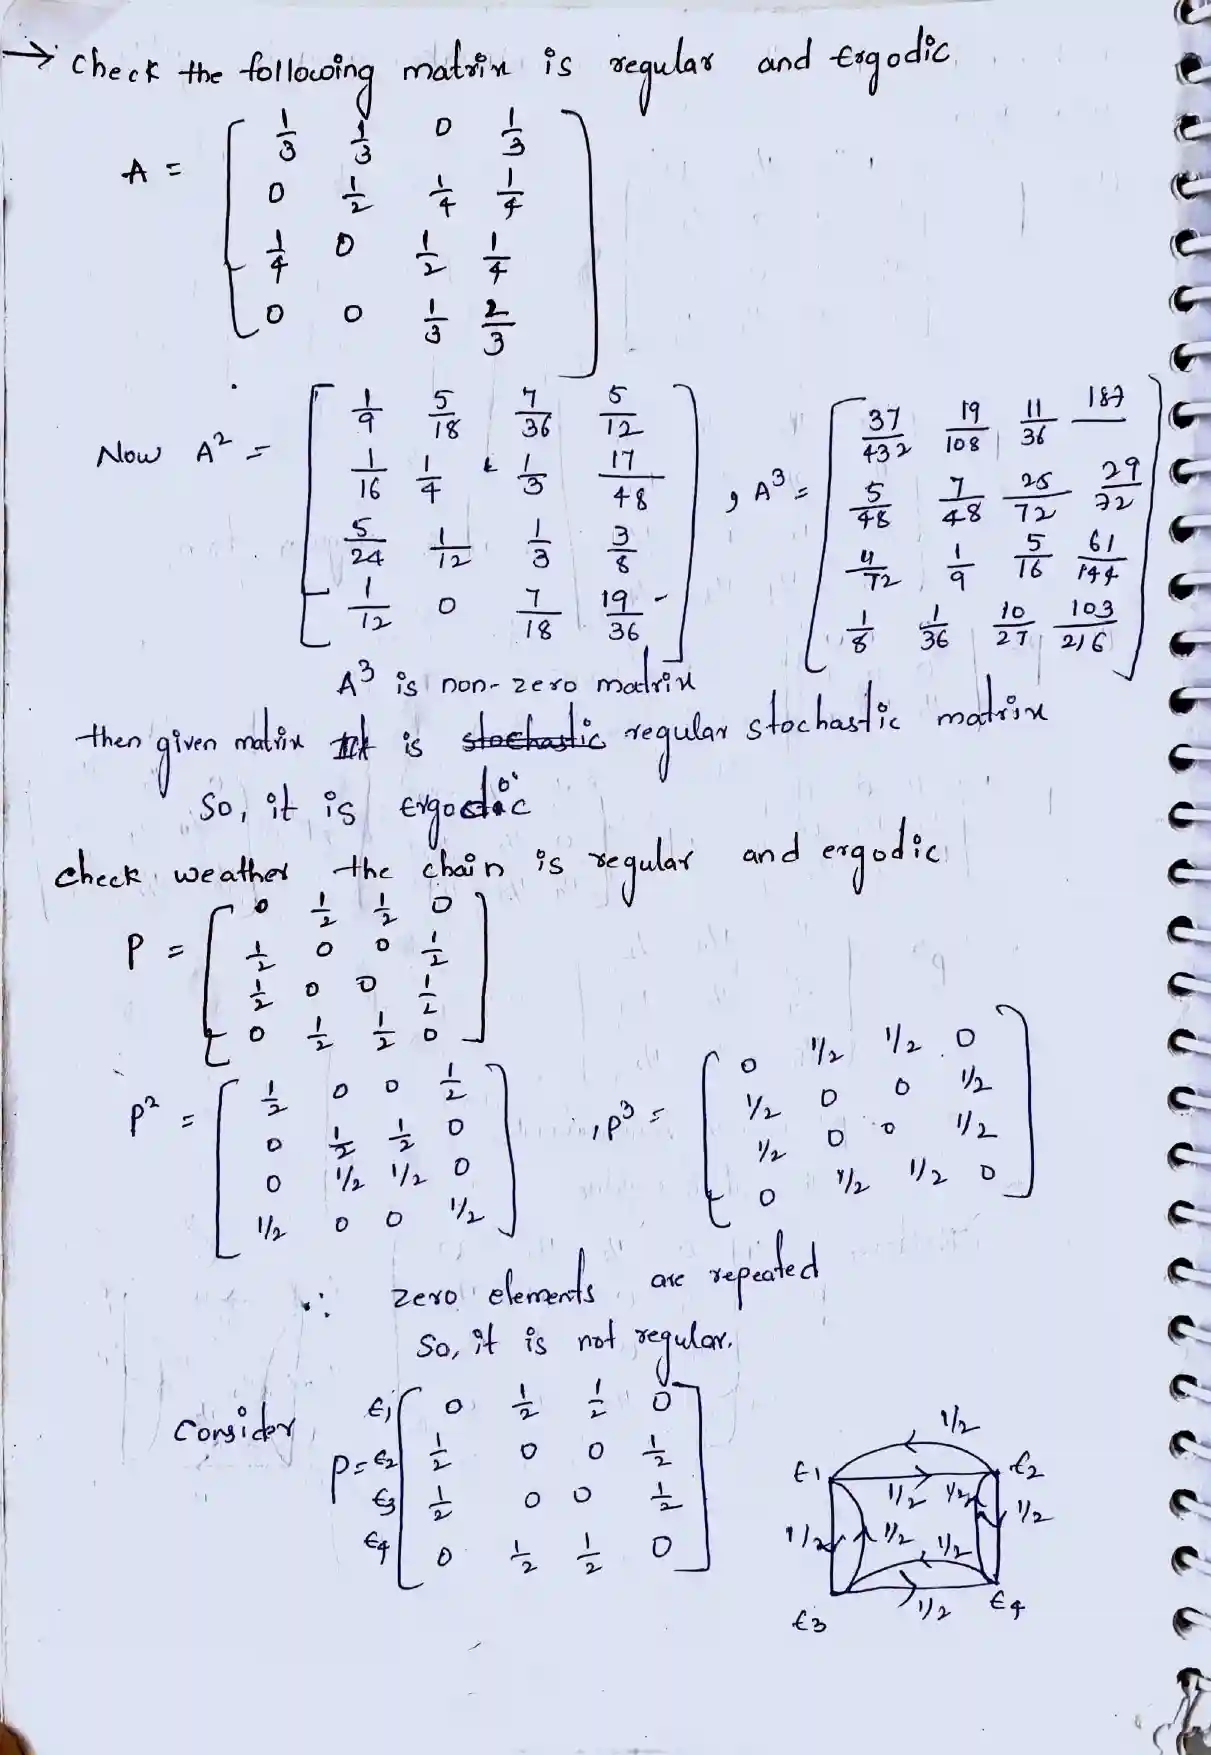 → Check the following matrix is regular and Ergodic
A = [ 1/3 1/3 0 1/3
0 1/2 1/4 1/4
1/4 0 1/2 1/4
0 0 1/3 2/3 ]
Now A² = [ 1/9 5/18 7/36 5/12
1/16 1/4 1/3 17/48
5/24 1/12 1/3 3/8
1/12 0 7/18 19/36 ]
, A³ = [ 37/432 19/108 11/36 187/
5/48 7/48 25/72 29/72
/72 1/9 5/16 61/144
1/8 1/36 10/27 103/216 ]
A³ is non-zero matrix
then given matrix is stochastic regular stochastic matrix
So, it is Ergodic
check weather the chain is regular and ergodic
P = [ 0 1/2 1/2 0
1/2 0 0 1/2
1/2 0 0 1/2
0 1/2 1/2 0 ]
P² = [ 1/2 0 0 1/2
0 1/2 1/2 0
0 1/2 1/2 0
1/2 0 0 1/2 ]
, P³ = [ 0 1/2 1/2 0
1/2 0 0 1/2
1/2 0 0 1/2
0 1/2 1/2 0 ]
∴ zero elements are repeated
So, it is not regular.
Consider P = E1 [ 0 1/2 1/2 0
E2 1/2 0 0 1/2
E3 1/2 0 0 1/2
E4 0 1/2 1/2 0 ]
1/2
E1 E2
1/2 1/2 1/2
1/2 1/2 1/2
1/2
E3 E4